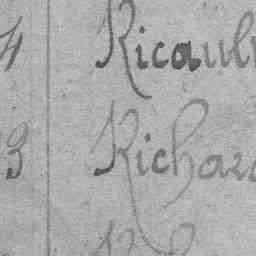 4 Ricaul
3 Richar